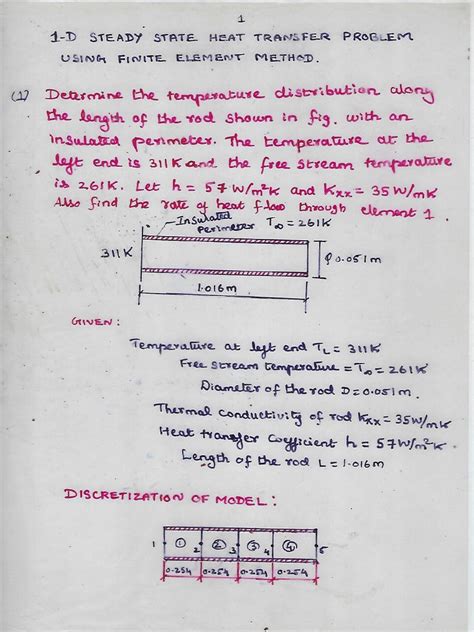 1
1-D STEADY STATE HEAT TRANSFER PROBLEM
USING FINITE ELEMENT METHOD.
(1) Determine the temperature distribution along
the length of the rod shown in fig. with an
insulated perimeter. The temperature at the
left end is 311K and the free stream temperature
is 261K. Let h = 57 W/m²K and Kxx = 35 W/mK
Also find the rate of heat flow through element 1.
Insulated
perimeter T∞ = 261K
311K
φ0.051m
1.016m
GIVEN:
Temperature at left end TL = 311K
Free stream temperature = T∞ = 261K
Diameter of the rod D = 0.051m.
Thermal conductivity of rod Kxx = 35W/mK
Heat transfer Coefficient h = 57W/m²K
Length of the rod L = 1.016m
DISCRETIZATION OF MODEL:
1 ① 2 ② 3 ③ 4 ④ 5
0.254 0.254 0.254 0.254